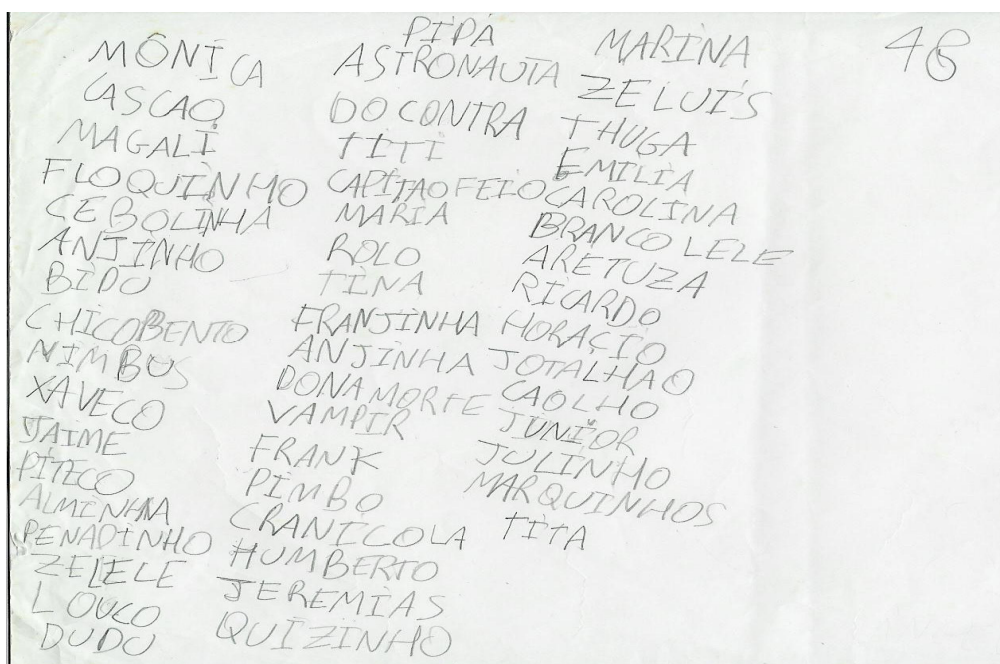 MÔNICA
CASCAO
MAGALI
FLOQUINHO
CEBOLINHA
ANJINHO
BIDU
CHICOBENTO
NIMBUS
XAVECO
JAIME
PITECO
ALMINHA
PENADINHO
ZELELE
LOUCO
DUDU
PIPA
ASTRONAUTA
DO CONTRA
TITI
CAPITAO FEIO
MARIA
ROLO
TINA
FRANJINHA
ANJINHA
DONA MORTE
VAMPIR
FRANK
PIMBO
CRANICOLA
HUMBERTO
JEREMIAS
QUIZINHO
MARINA
ZE LUÍS
THUGA
EMILIA
CAROLINA
BRANCO LELE
ARETUZA
RICARDO
HORACIO
JOTALHAO
CAOLHO
JUNIOR
JULINHO
MARQUINHOS
TITA
48